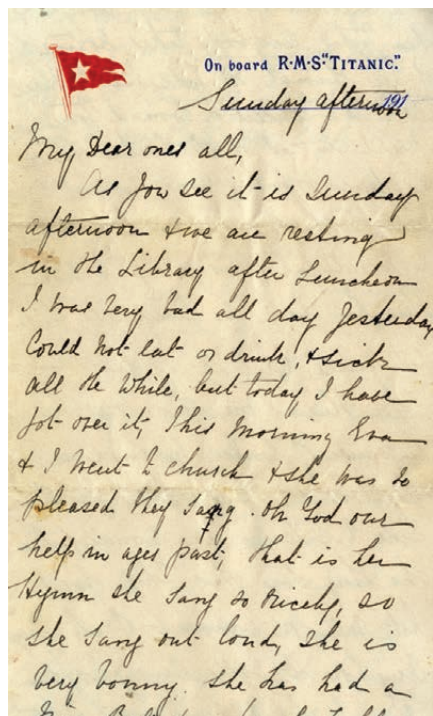 On board R·M·S "TITANIC".
Sunday afternoon
191
My Dear ones all,
As you see it is Sunday
afternoon & we are resting
in the Library after Luncheon
I was very bad all day Yesterday
Could not eat or drink, & sick
all the while, but today I have
got over it, This Morning Eva
& I went to church & she was so
pleased they sang Oh God our
help in ages past, that is her
Hymn she sang so nicely, so
she sang out loud, she is
very bonny. She has had a